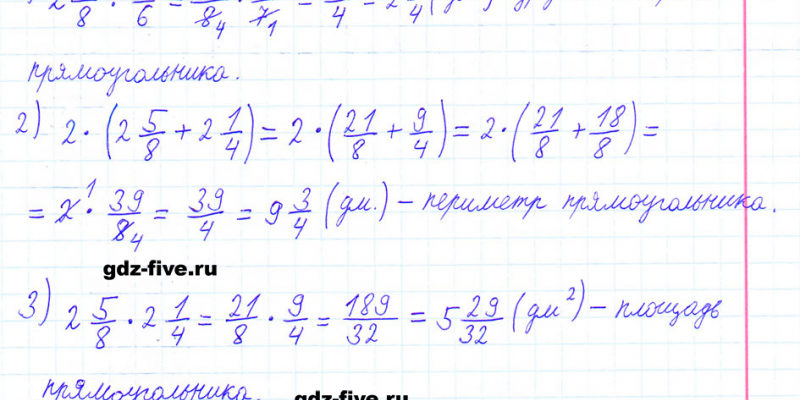 прямоугольника.
2) 2 · (2 5/8 + 2 1/4) = 2 · (21/8 + 9/4) = 2 · (21/8 + 18/8) =
= 2 1 · 39/8 4 = 39/4 = 9 3/4 (дм.) – периметр прямоугольника.
gdz-five.ru
3) 2 5/8 · 2 1/4 = 21/8 · 9/4 = 189/32 = 5 29/32 (дм²) – площадь
прямоугольника.
gdz-five.ru